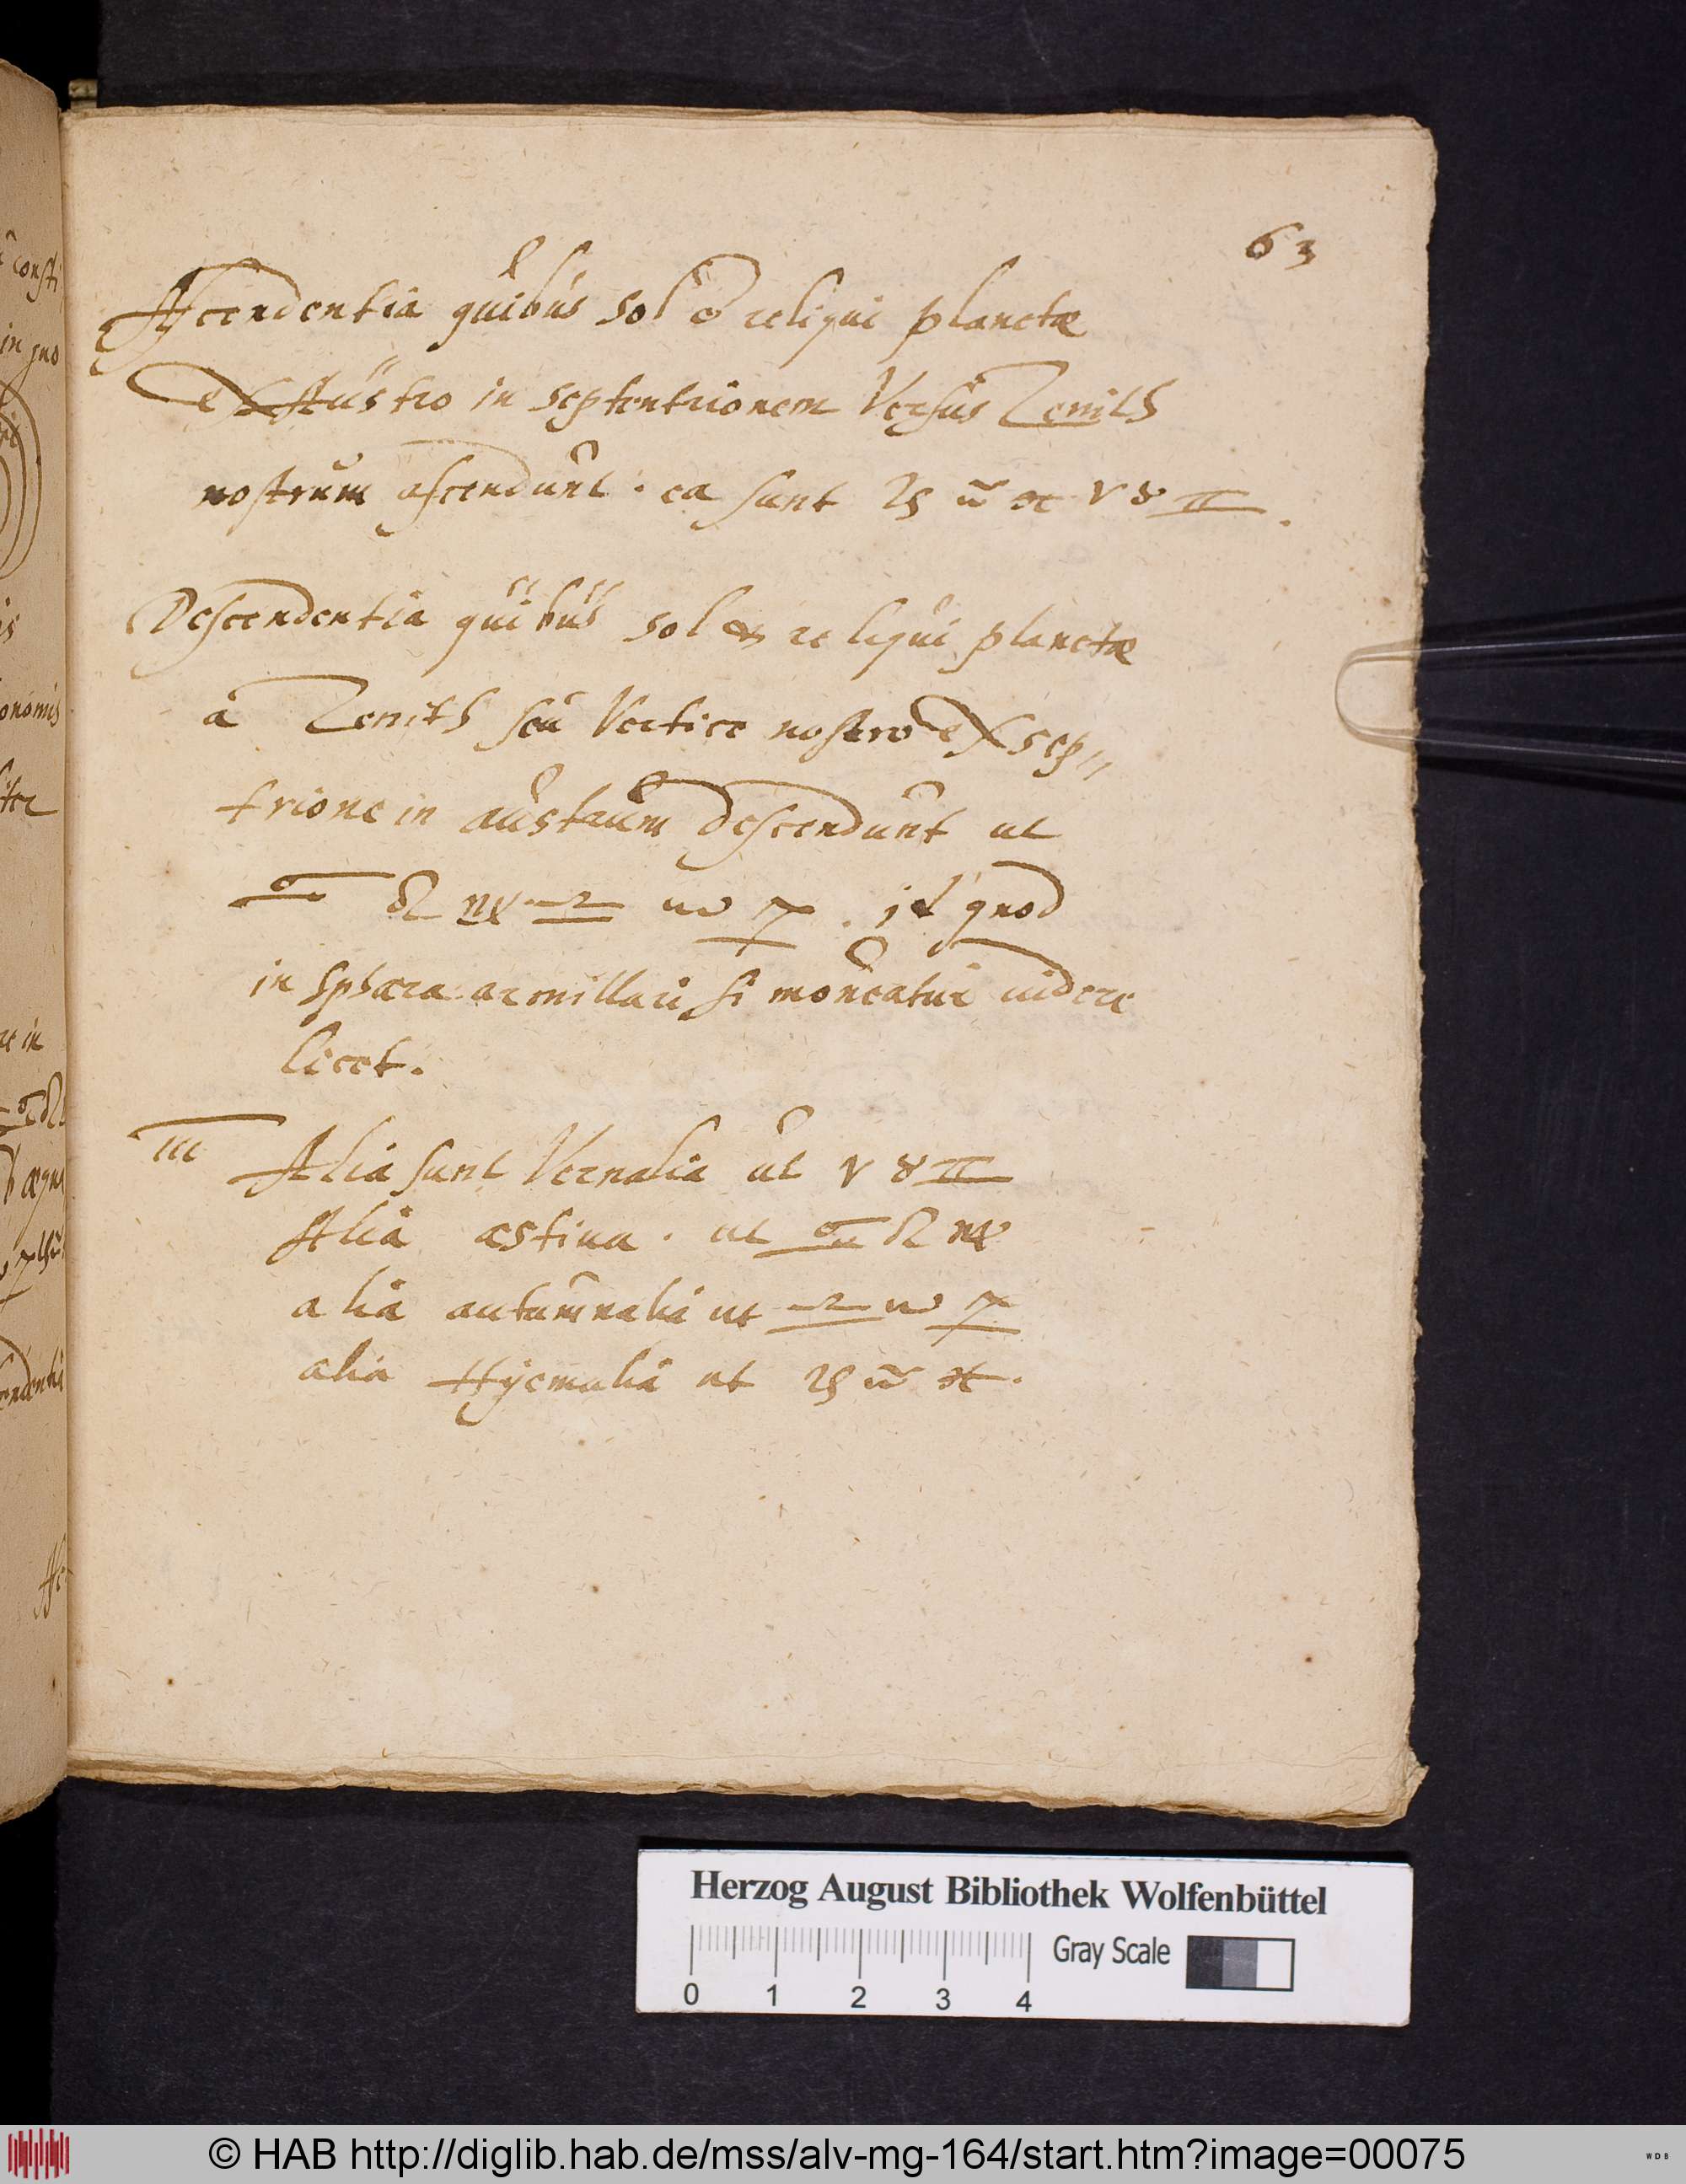 63
Ascendentia quibus sol & reliqui planetæ
ex Austro in septentrionem versus Zenith
nostrum ascendunt. ea sunt ♑ ♒ ♓ ♈ ♉ ♊.
Descendentia quibus sol & reliqui planetæ
à Zenith seu Vertice nostro ex sep〃
trione in austrum descendunt ut
♋ ♌ ♍ ♎ ♏ ♐. id quod
in sphæra armillari si moueatur uidere
licet.
III Alia sunt Vernalia ut ♈ ♉ ♊
Alia æstiua. ut ♋ ♌ ♍
alia autumnalia ut ♎ ♏ ♐
alia Hyemalia ut ♑ ♒ ♓.
Herzog August Bibliothek Wolfenbüttel
0 1 2 3 4 Gray Scale
© HAB http://diglib.hab.de/mss/alv-mg-164/start.htm?image=00075
WDB